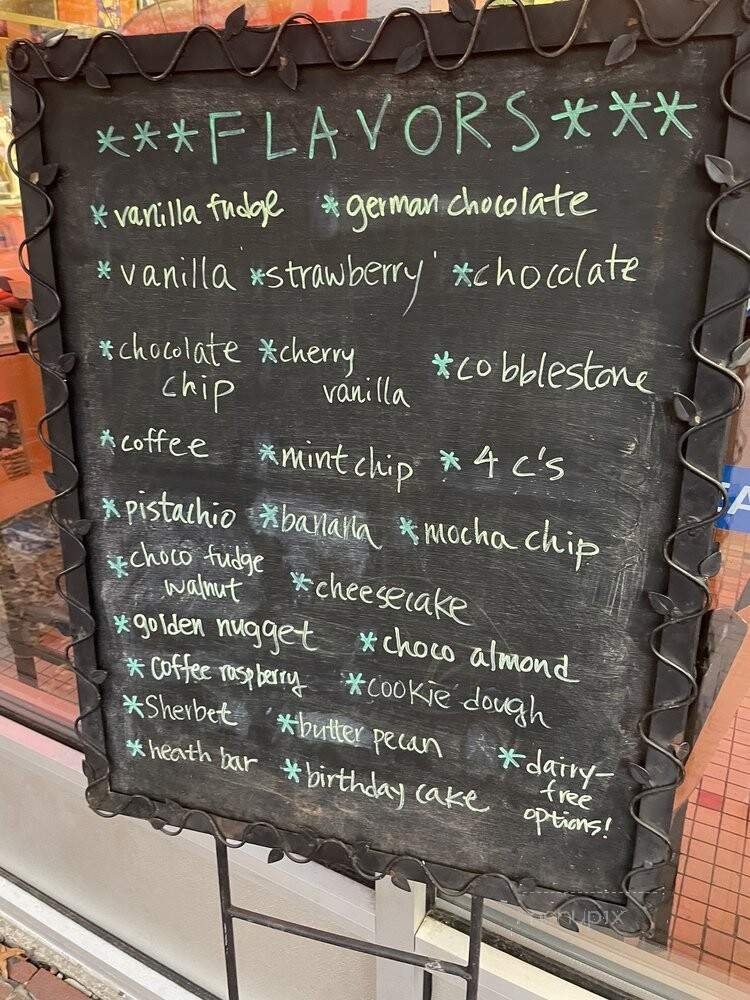 ***FLAVORS***
* vanilla fudge * german chocolate
* vanilla * strawberry * chocolate
* chocolate chip * cherry vanilla * cobblestone
* coffee * mint chip * 4 c's
* pistachio * banana * mocha chip
* choco fudge walnut * cheesecake
* golden nugget * choco almond
* coffee raspberry * cookie dough
* Sherbet * butter pecan
* heath bar * birthday cake * dairy-free options!
menupix